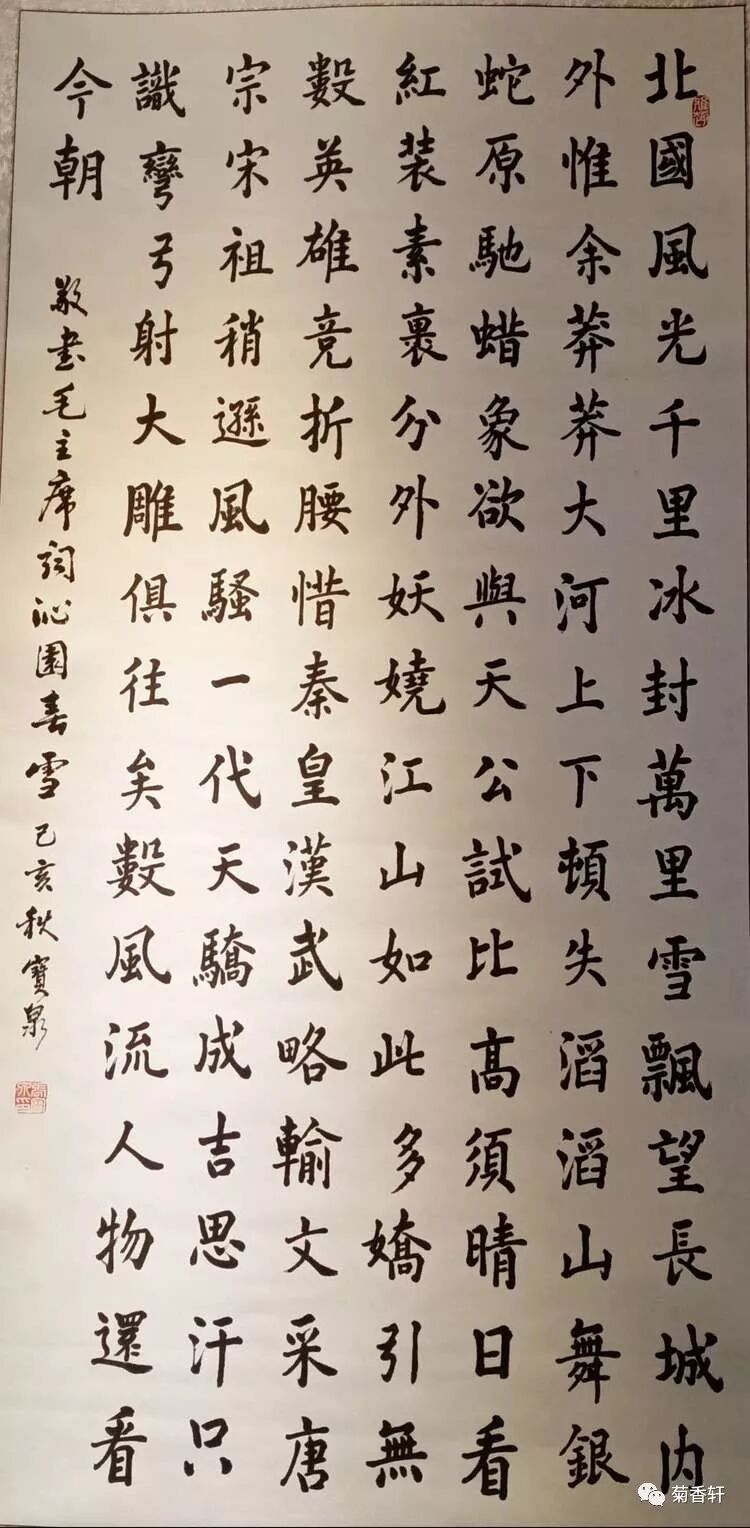 北國風光千里冰封萬里雪飄望長城内
外惟余莽莽大河上下頓失滔滔山舞銀
蛇原馳蜡象欲與天公試比高須晴日看
紅装素裹分外妖嬈江山如此多嬌引無
數英雄竞折腰惜秦皇漢武略輸文采唐
宗宋祖稍遜風騷一代天驕成吉思汗只
識彎弓射大雕俱往矣數風流人物還看
今朝
敬書毛主席詞沁園春雪 己亥秋 寶泉
菊香轩